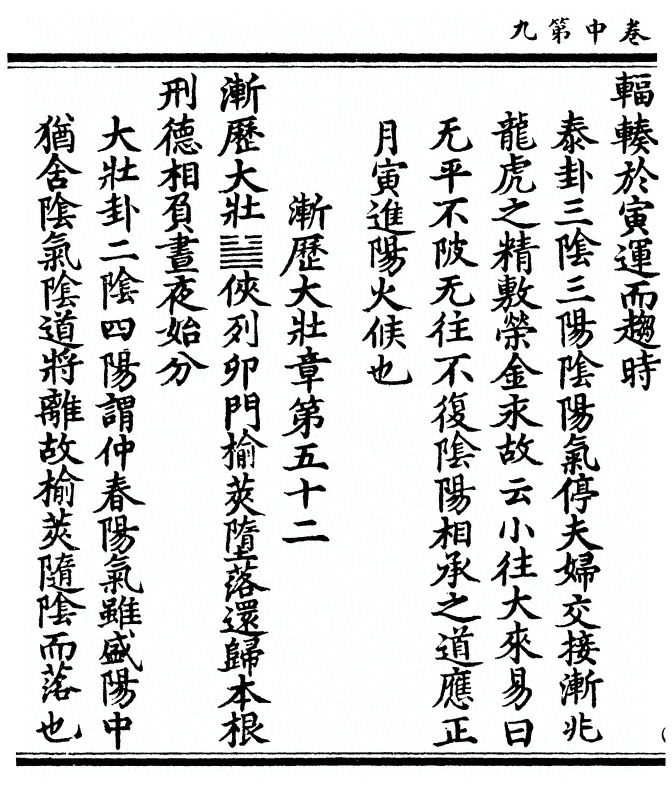 卷中第九
輻輳於寅運而趨時
泰卦三陰三陽陰陽氣停夫婦交接漸兆
龍虎之精敷榮金永故云小往大來易曰
无平不陂无往不復陰陽相承之道應正
月寅進陽火候也
漸歷大壯章第五十二
漸歷大壯䷡俠列卯門榆莢墮落還歸本根
刑德相負晝夜始分
大壯卦二陰四陽謂仲春陽氣雖盛陽中
猶含陰氣陰道將離故榆莢隨陰而落也